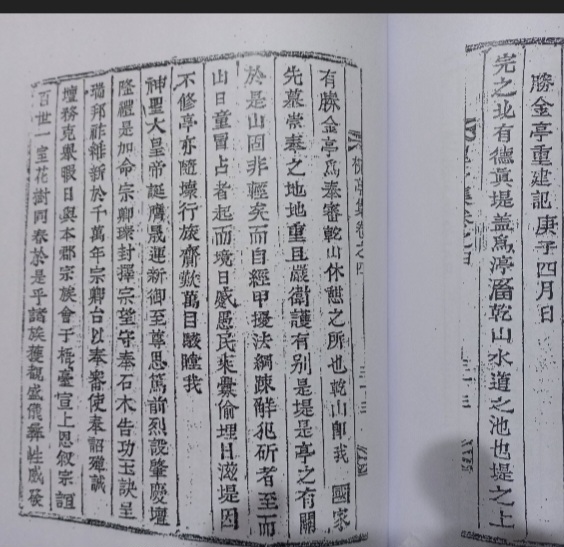 勝金亭重建記 庚子四月日
完之北有德眞堤盖爲渟滀乾山水道之池也堤之上
集卷之四
有勝金亭爲奉審乾山休憩之所也乾山卽我 國家
先墓常奉之地地重且嚴衛護有别是堤是亭之有關
於是山固非輕矣而自經甲擾法綱踈觧犯斫者至而
山日童冒占者起而境日蹙愚民乘釁偷埋日滋堤因
不修亭亦隨壞行旅齎歎萬目駭瞠我
神聖大皇帝誕膺晟運新御至尊思篤前烈設肇慶壇
隆禮是加命宗卿環封擇宗望守奉石木告功玉訣呈
瑞邦祚維新於千萬年宗卿台以奉審使奉詔殫誠
壇務克擧暇日與本郡宗族會于梧臺宣上恩叙宗誼
百世一室花樹同春於是乎諸族擁覩盛儀彛性感發